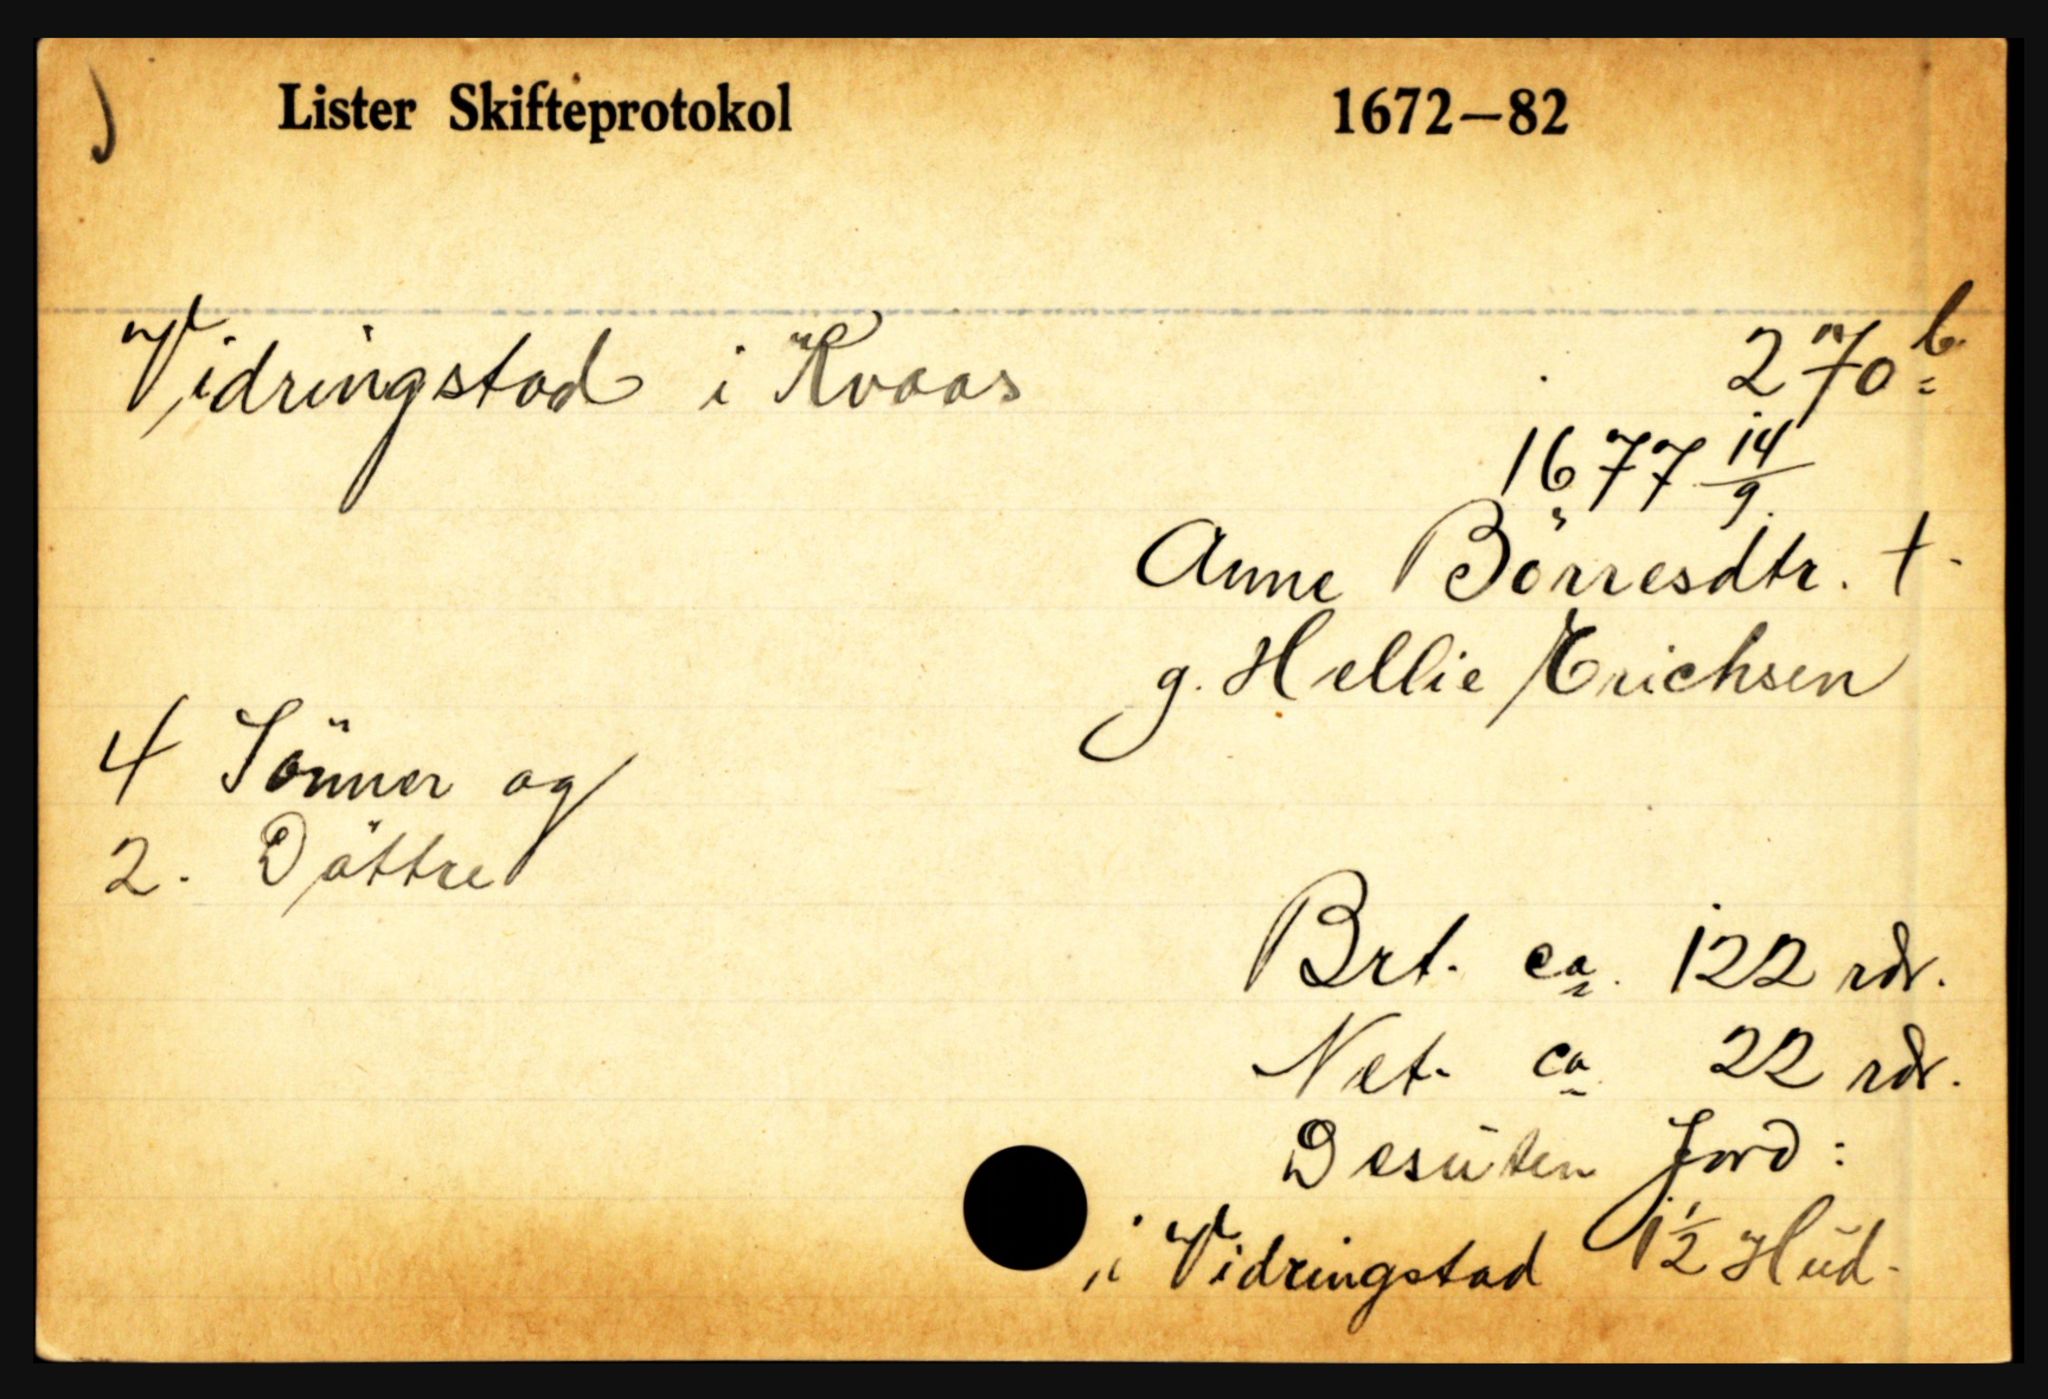 Lister Skifteprotokol 1672–82
Vidringstad i Kvaas 270 b
1677 14/9
Anne Börresdtr. †.
g. Hellie Erichsen
4 Sönner og
2. Döttre
Brt. ca. 122 rdr.
Net. ca 22 rdr.
Desūten Jord:
i Vidringstad 1½ Hūd.